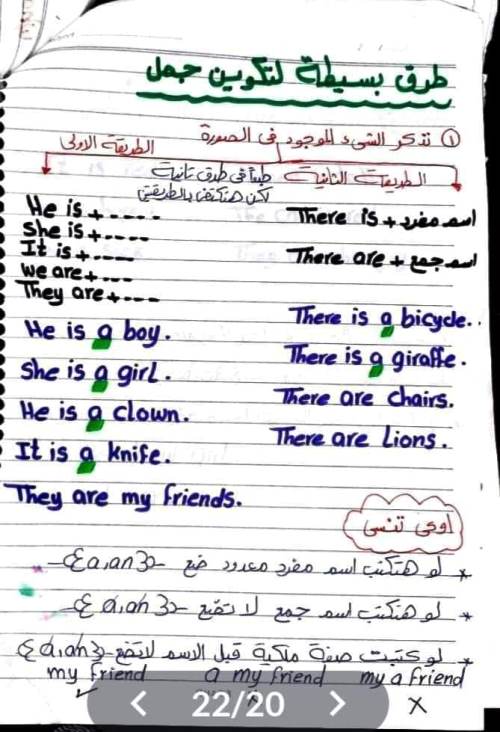 طرق بسيطة لتكوين جمل
① نذكر الشيء الموجود في الصورة
الطريقة الاولى
الطريقة الثانية
طبعاً في طرق تانية
لكن هنكتفي بالطريقتين
He is + - - - -
She is + - - - -
It is + - - - -
we are + - - -
They are + - - -
There is + اسم مفرد
There are + اسم جمع
He is a boy.
She is a girl.
He is a clown.
It is a knife.
They are my friends.
There is a bicycle..
There is a giraffe.
There are chairs.
There are Lions.
اوعى تنسى
* لو هتكتب اسم مفرد معدود ضع -{a,an}-
* لو هتكتب اسم جمع لا تضع -{a,an}-
* لو كتبت صفة ملكية قبل الاسم لا تضع -{a,an}
my friend a my friend my a friend
✓ x X
< 22/20 >